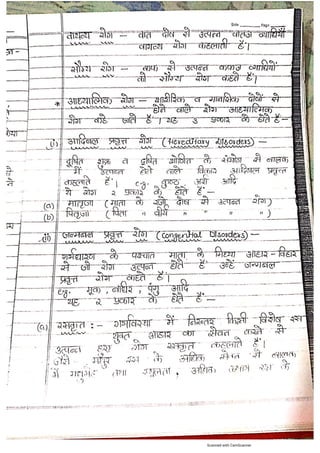 Date ____ Page ____
वायव्य रोग - वात दोष से उत्पन्न वातज व्याधियाँ
वायव्य रोग कहलाती हैं।
सौम्य रोग - कफ से उत्पन्न कफज व्याधियों
को सौम्य रोग कहते हैं।
* आध्यात्मिक रोग - शारीरिक व मानसिक दोषों से
होने वाले रोग आध्यात्मिक
रोग कहे जाते हैं। यह 3 प्रकार के होते हैं:-
(i) आदिबल प्रवृत्त रोग (Hereditary Disorders):-
दूषित शुक्र व दूषित शोणित के संयोग से बालक
में उत्पन्न होने वाले विकार आदिबल प्रवृत्त
कहलाते हैं। e.g. कुष्ठ, अर्श आदि
ये रोग 2 प्रकार के होते हैं-
(a) मातृजा (माता के रज दोष से उत्पन्न रोग)
(b) पितृजा (पिता " वीर्य " " " ")
(ii) जन्मबल प्रवृत्त रोग (Congenital Disorders):-
गर्भधारण के पश्चात माता के मिथ्या आहार-विहार
से जो रोग उत्पन्न होते हैं उन्हें जन्मबल
प्रवृत्त रोग कहते हैं।
e.g. मूक, बधिर, पंगु आदि
यह 2 प्रकार के होते हैं-
(a) रसकृत :- गर्भावस्था में निरन्तर किसी विशेष रस
युक्त आहार का सेवन करने से
उत्पन्न हुए रोग रसकृत कहलाते हैं।
जैसे - मधुर रस के अधिक सेवन से बालक
में तथा स्थूलता, अधिक रस के
Scanned with CamScanner